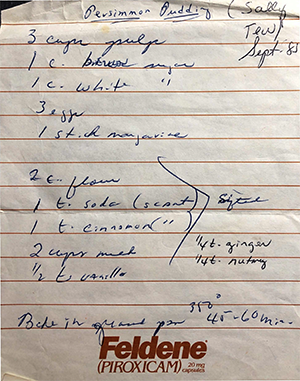 Persimmon Pudding (Sally
Tew)
Sept. 85
3 cups pulp
1 c. brown sugar
1 c. white "
3 eggs
1 stick margarine
2 c. flour
1 t. soda (scant) Sift
1 t. cinnamon "
1/4 t. ginger
2 cups milk
1/4 t. nutmeg
1/2 t. vanilla
350°
Bake in greased pan 45-60 min.
Feldene®
(PIROXICAM) 20 mg
capsules